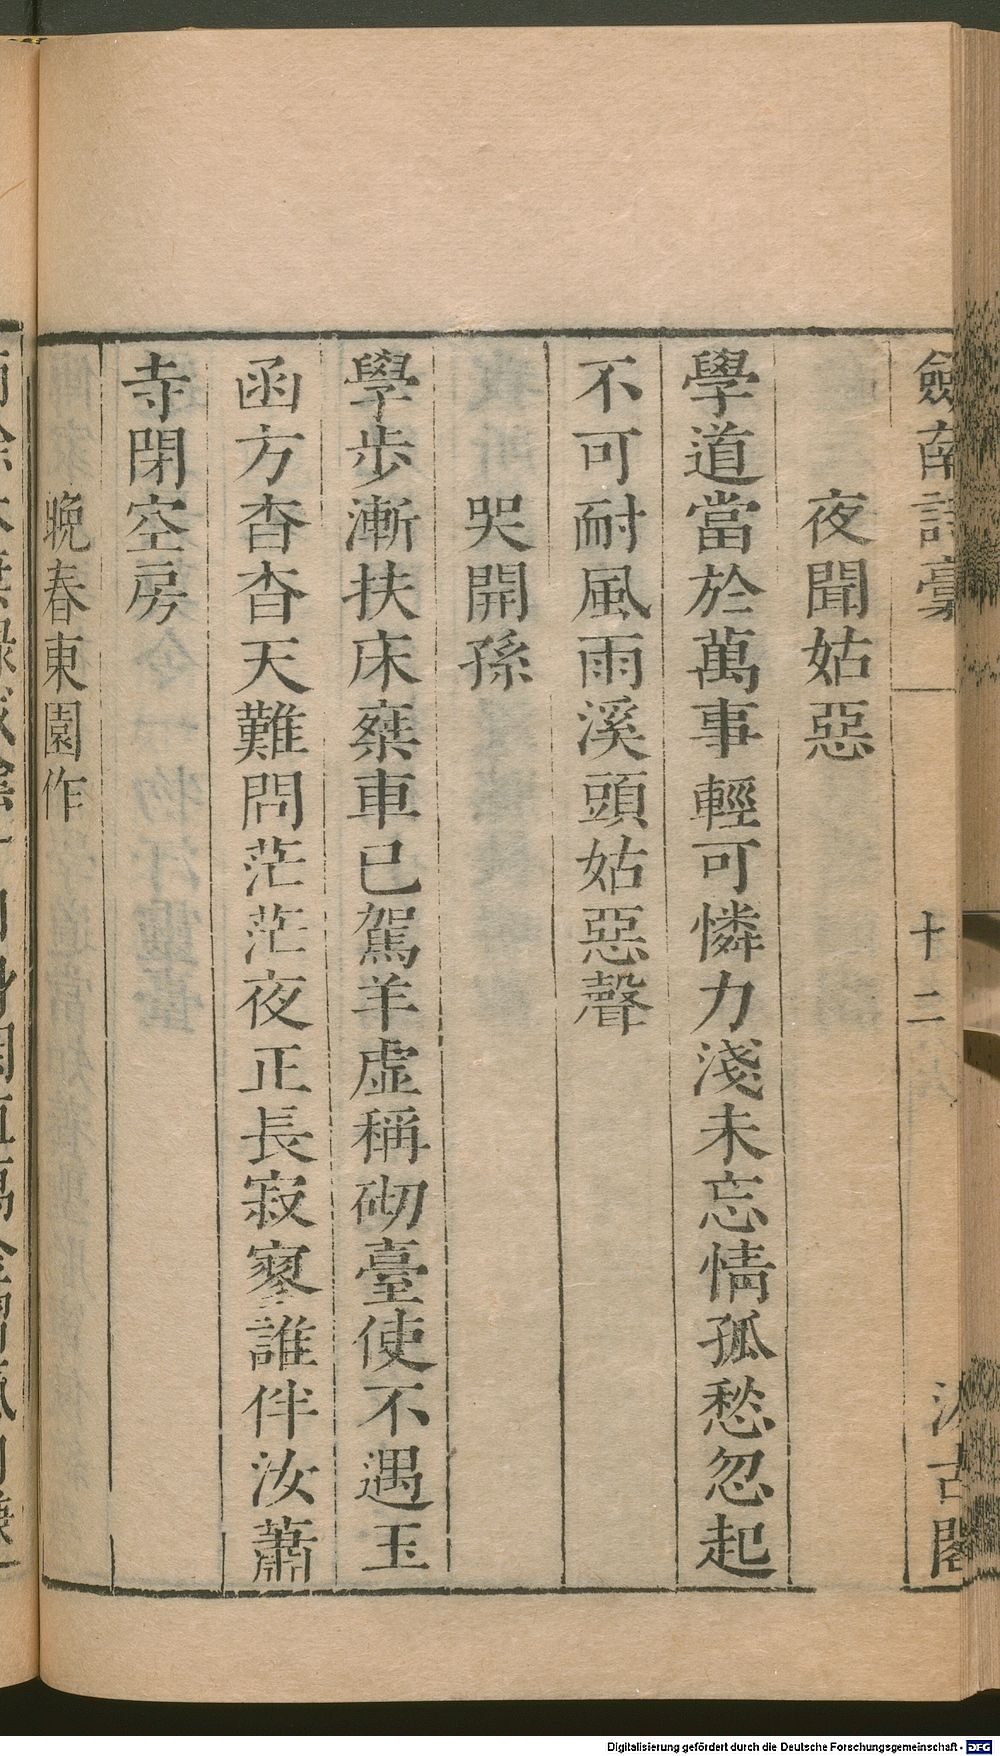 劒南詩稾
十二
汲古閣
夜聞姑惡
學道當於萬事輕可憐力淺未忘情孤愁忽起
不可耐風雨溪頭姑惡聲
哭開孫
學步漸扶床棄車已駕羊虛稱砌臺使不遇玉
函方杳杳天難問茫茫夜正長寂寥誰伴汝蕭
寺閉空房
晚春東園作
Digitalisierung gefördert durch die Deutsche Forschungsgemeinschaft - DFG